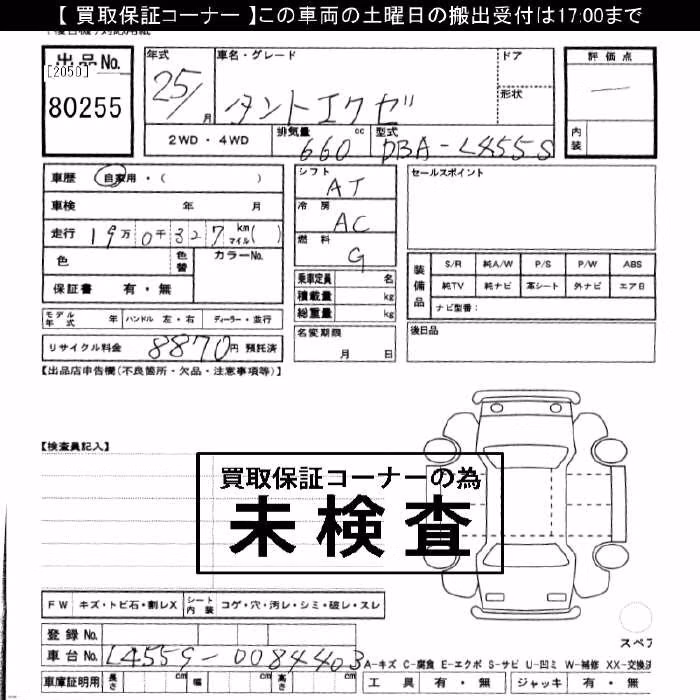 【 買取保証コーナー 】この車両の土曜日の搬出受付は17:00まで
出品No.
[2050]
80255
年式
25/
月
車名・グレード
タントエクゼ
ドア
形状
評価点
内装
2WD・4WD
排気量
660
cc
型式
DBA-L455S
車歴 自家用・( )
車検 年 月
走行 19万0千327 km マイル( )
色 色替 カラーNo.
保証書 有・無
シフト
AT
冷房
AC
燃料
G
乗車定員 名
積載量 kg
総重量 kg
セールスポイント
装備品
S/R 純A/W P/S P/W ABS
純TV 純ナビ 革シート 外ナビ エアB
ナビ型番:
モデル年式 年 ハンドル 左・右 ディーラー・並行
リサイクル料金 8870円 預託済
名変期限
月 日
後日品
【出品店申告欄(不良箇所・欠品・注意事項等)】
【検査員記入】
買取保証コーナーの為
未検査
FW キズ・トビ石・割レX シート内装 コゲ・穴・汚レ・シミ・破レ・スレ
登録No.
車台No. L455S-0084403
スペア
A-キズ C-腐食 E-エクボ S-サビ U-凹ミ W-補修 XX-交換済
車庫証明用 長さ 幅 高さ
工具 有・無 ジャッキ 有・無